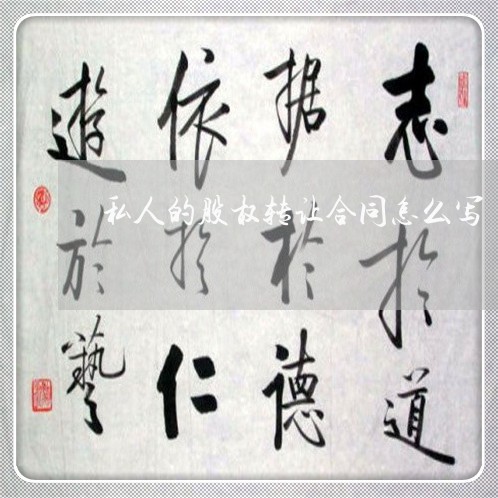 志於道
据於德
依於仁
遊於藝
私人的股权转让合同怎么写